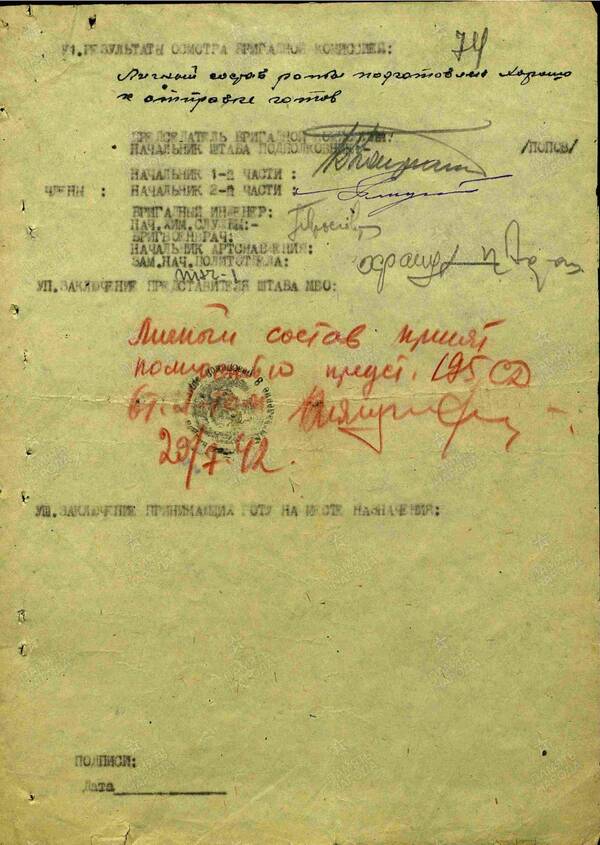 74
У1.РЕЗУЛЬТАТЫ ОСМОТРА БРИГАДНОЙ КОМИССИЕЙ:
Личный состав роты подготовлен хорошо
к отправке готов
ПРЕДСЕДАТЕЛЬ БРИГАДНОЙ КОМИССИИ:
НАЧАЛЬНИК ШТАБА ПОДПОЛКОВНИК /ПОПОВ/
НАЧАЛЬНИК 1-й ЧАСТИ :
ЧЛЕНЫ : НАЧАЛЬНИК 2-й ЧАСТИ :
БРИГАДНЫЙ ИНЖЕНЕР:
НАЧ.ХИМ.СЛУЖБЫ:-
БРИГВОЕНВРАЧ:
НАЧАЛЬНИК АРТСНАБЖЕНИЯ:
ЗАМ.НАЧ.ПОЛИТОТДЕЛА:
УП.ЗАКЛЮЧЕНИЕ ПРЕДСТАВИТЕЛЯ ШТАБА МВО:
Личный состав принят
полностью предст. 195 СД
29/7.42.
УШ.ЗАКЛЮЧЕНИЕ ПРИНИМАЮЩИХ РОТУ НА МЕСТЕ НАЗНАЧЕНИЯ:
ПОДПИСИ:
Дата